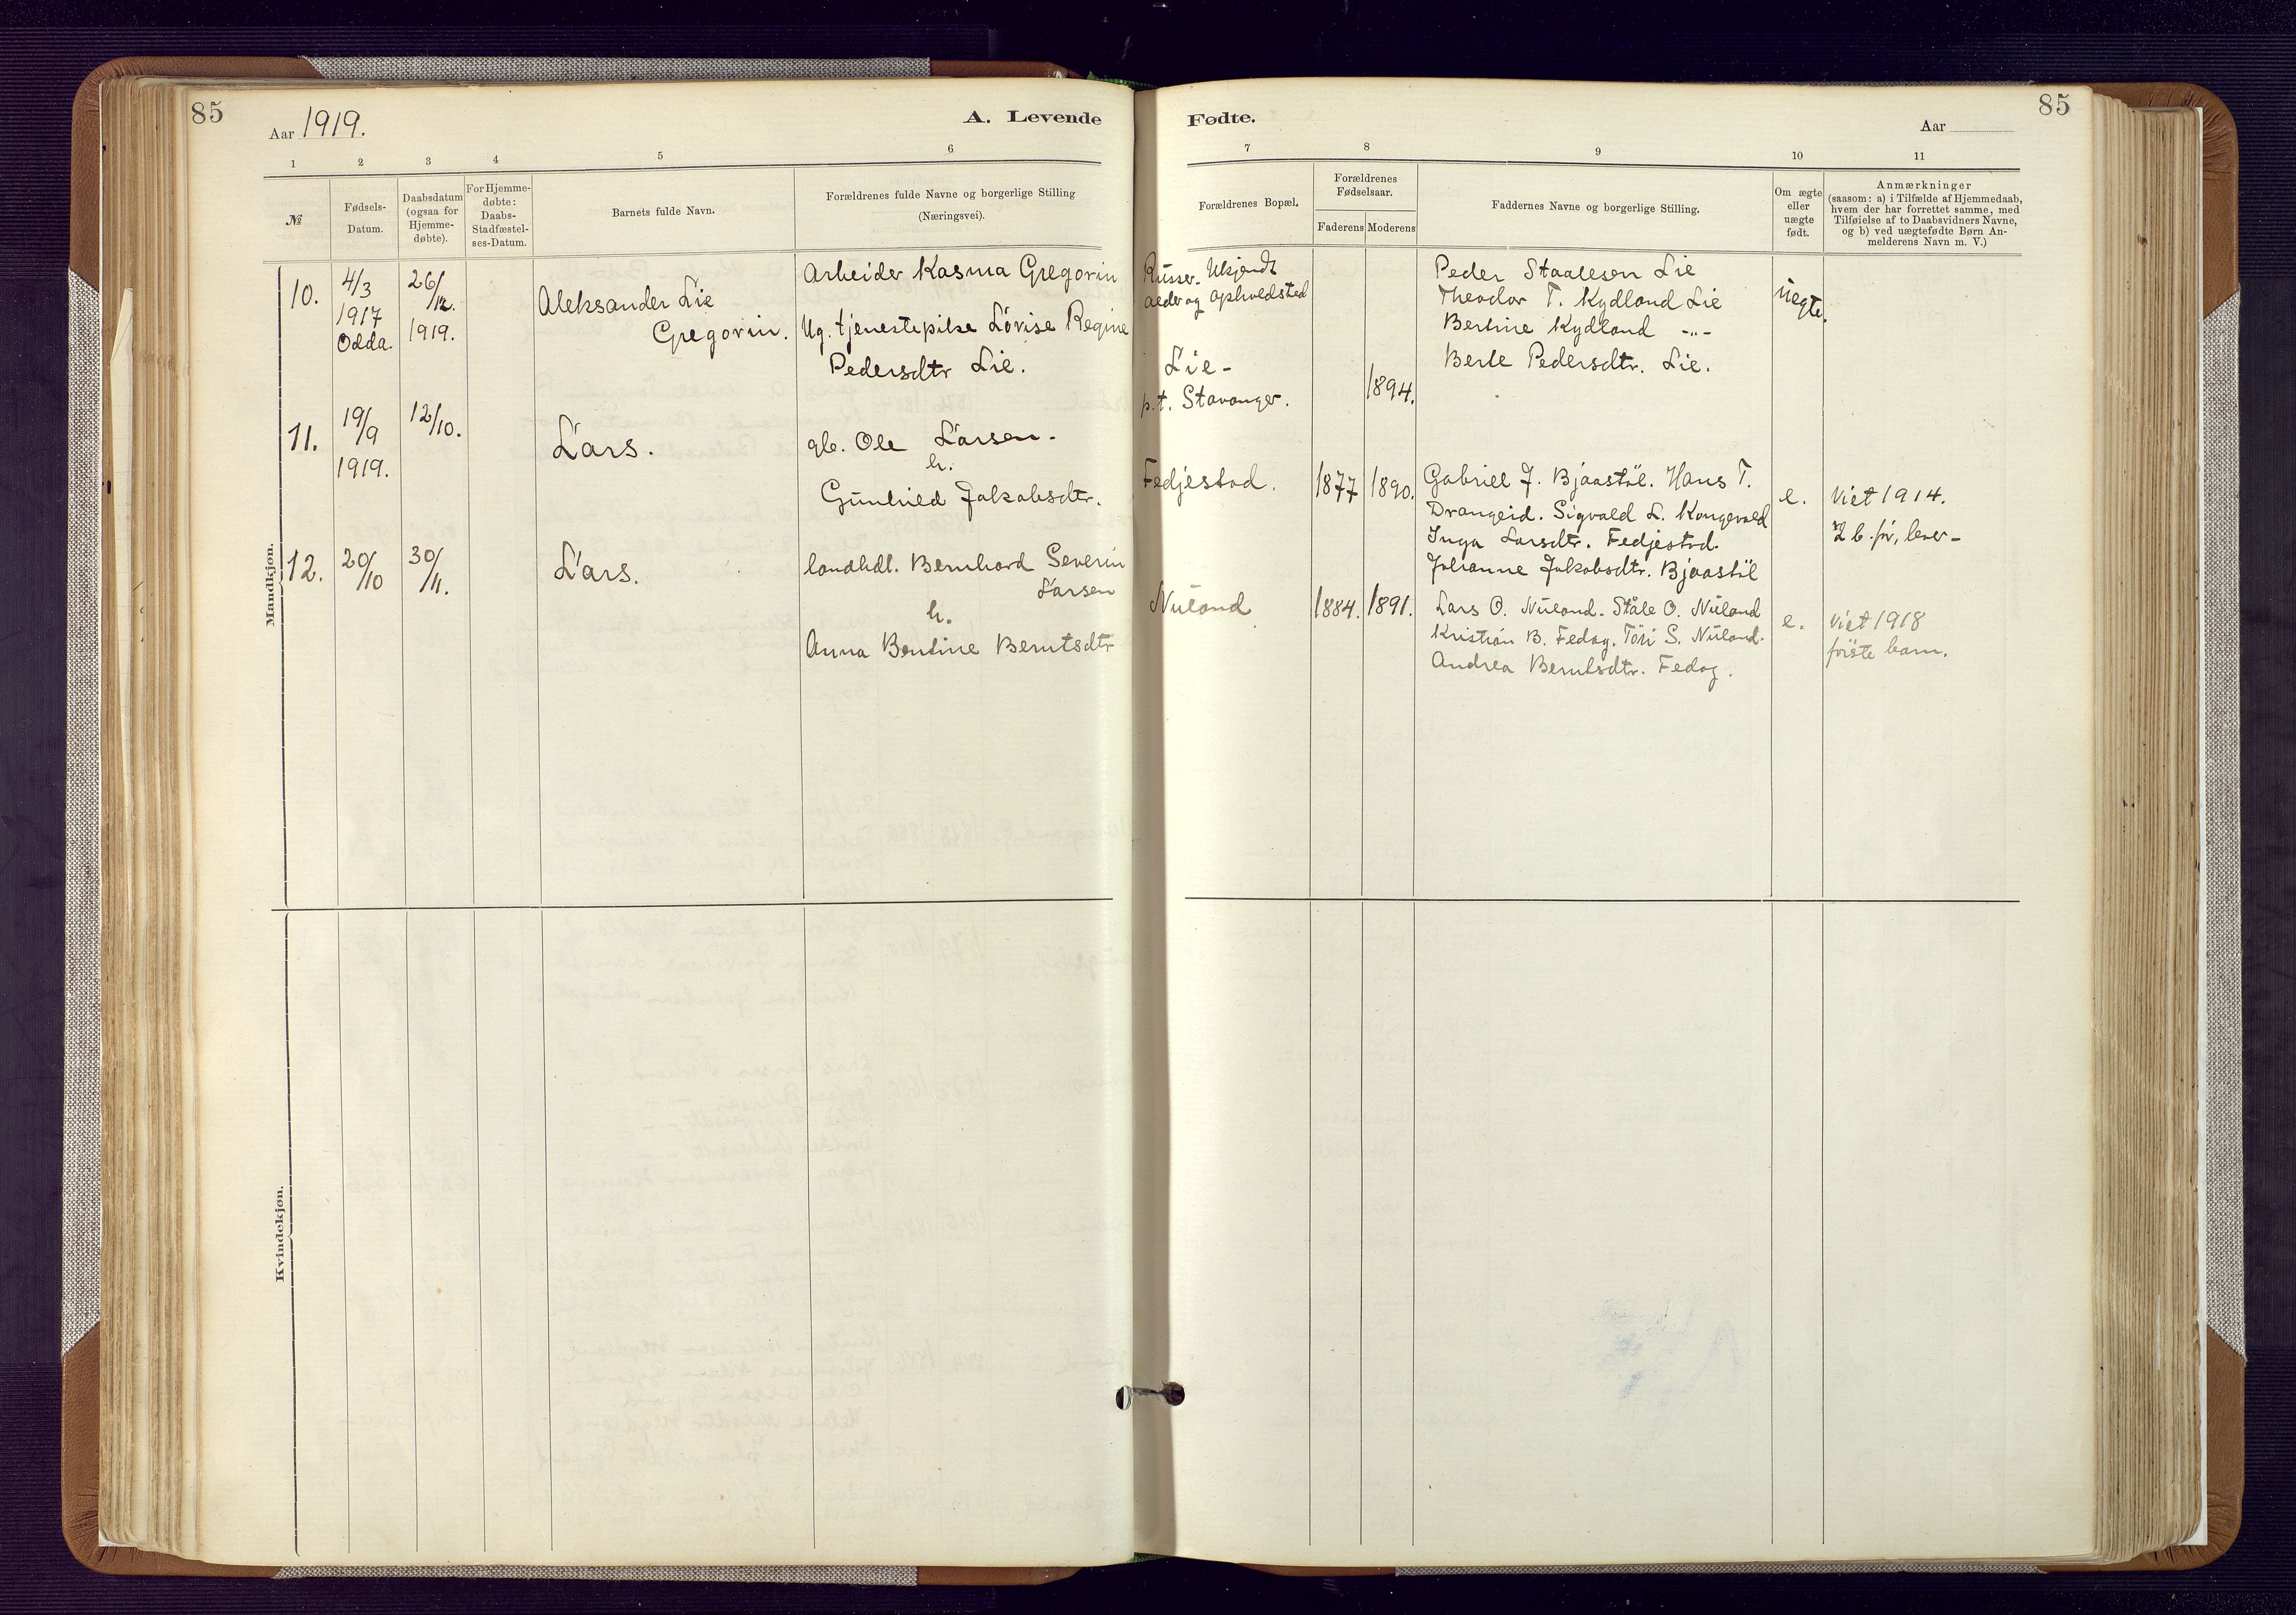 85
Aar 1919.
A. Levende
Fødte.
Aar
85
1
2
3
4
5
6
7
8
9
10
11
№
Fødsels-
Datum.
Daabsdatum
(ogsaa for
Hjemme-
døbte).
For Hjemme-
døbte:
Daabs-
Stadfæstel-
ses-Datum.
Barnets fulde Navn.
Forældrenes fulde Navne og borgerlige Stilling
(Næringsvei).
Forældrenes Bopæl.
Forældrenes
Fødselsaar.
Faderens
Moderens
Faddernes Navne og borgerlige Stilling.
Om ægte
eller
uægte
født.
Anmærkninger
(saasom: a) i Tilfælde af Hjemmedaab,
hvem der har forrettet samme, med
Tilføielse af to Daabsvidners Navne,
og b) ved uægtefødte Børn An-
melderens Navn m. V.)
Mandkjøn.
10.
4/3
1917
Odda.
26/12.
1919.
Aleksander Lie
Gregorin.
Arbeider Kasma Gregorin
Ug. tjenestepike Lovise Regine
Pedersdtr Lie.
Russer. Ukjendt
alder og opholdsted
Lie-
p.t. Stavanger.
1894.
Peder Staalesen Lie
Theodor T. Kydland Lie
Bertine Kydland -"-
Berte Pedersdtr. Lie.
uegte.
11.
19/9
1919.
12/10.
Lars.
gb. Ole Larsen.
h.
Gunhild Jakobsdtr.
Fedjestad.
1877
1890.
Gabriel J. Bjaastøl. Hans T.
Drangeid. Sigvald L. Kongevold
Inga Larsdtr. Fedjestad.
Johanne Jakobsdtr. Bjaastøl
e.
Viet 1914.
2 b. før, lever-
12.
20/10
30/11.
Lars.
landhdl. Bernhard Severin
Larsen
h.
Anna Bentine Berntsdtr
Nuland
1884.
1891.
Lars O. Nuland. Ståle O. Nuland
Kristian B. Fedog. Tøri S. Nuland.
Andrea Berntsdtr. Fedog.
e.
Viet 1918
første barn.
Kvindekjøn.